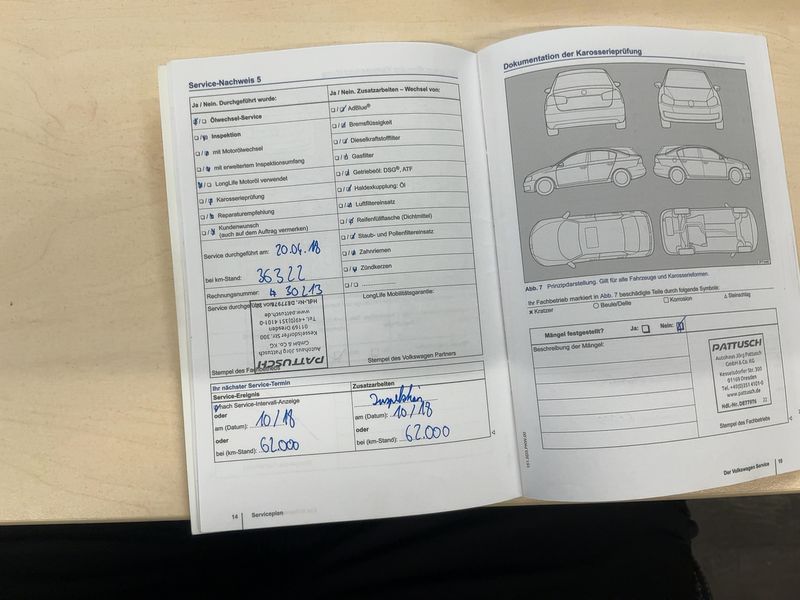 Service-Nachweis 5
Ja / Nein. Durchgeführt wurde:
Ölwechsel-Service
Inspektion
mit Motorölwechsel
mit erweitertem Inspektionsumfang
LongLife Motoröl verwendet
Karosserieprüfung
Reparaturempfehlung
Kundenwunsch
(auch auf dem Auftrag vermerken)
Service durchgeführt am: 20.04.18
bei km-Stand: 36322
Rechnungsnummer: 4 30213
Service durchgeführt
PATTUSCH
Autohaus Jörg Pattusch
GmbH & Co. KG
Kesselsdorfer Str. 300
01169 Dresden
Tel. +49(0)351 4101-0
www.pattusch.de
Stempel des Fachbetriebs
Ja / Nein. Zusatzarbeiten – Wechsel von:
AdBlue®
Bremsflüssigkeit
Dieselkraftstofffilter
Gasfilter
Getriebeöl: DSG®, ATF
Haldexkupplung: Öl
Luftfiltereinsatz
Reifenfüllflasche (Dichtmittel)
Staub- und Pollenfiltereinsatz
Zahnriemen
Zündkerzen
LongLife Mobilitätsgarantie:
Stempel des Volkswagen Partners
Ihr nächster Service-Termin
Service-Ereignis
nach Service-Intervall-Anzeige
oder
am (Datum): 10/18
oder
bei (km-Stand): 62.000
Zusatzarbeiten
Inspektion
am (Datum): 10/18
oder
bei (km-Stand): 62.000
14 Serviceplan
Dokumentation der Karosserieprüfung
Abb. 7 Prinzipdarstellung. Gilt für alle Fahrzeuge und Karosserieformen.
Ihr Fachbetrieb markiert in Abb. 7 beschädigte Teile durch folgende Symbole:
× Kratzer ○ Beule/Delle □ Korrosion △ Steinschlag
Mängel festgestellt? Ja: Nein:
Beschreibung der Mängel:
PATTUSCH
Autohaus Jörg Pattusch
GmbH & Co. KG
Kesselsdorfer Str. 300
01169 Dresden
Tel. +49(0)351 4101-0
www.pattusch.de
Hdl.-Nr.: DEU7976 22
Stempel des Fachbetriebs
Der Volkswagen Service